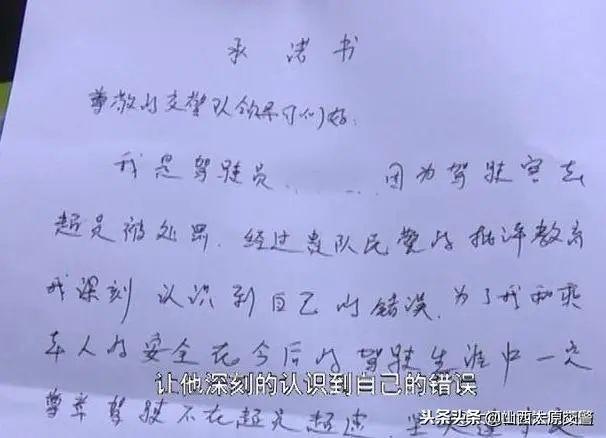 承诺书
尊敬的交警队领导你们好:
我是驾驶员 因为驾驶室志
超员被处罚.经过贵队民警的批评教育
我深刻认识到自己的错误.为了我和乘
车人的安全在今后的驾驶生涯中一定
让他深刻的认识到自己的错误
尊章驾驶不在超员超速.坚
头条头条 @山西太原交警